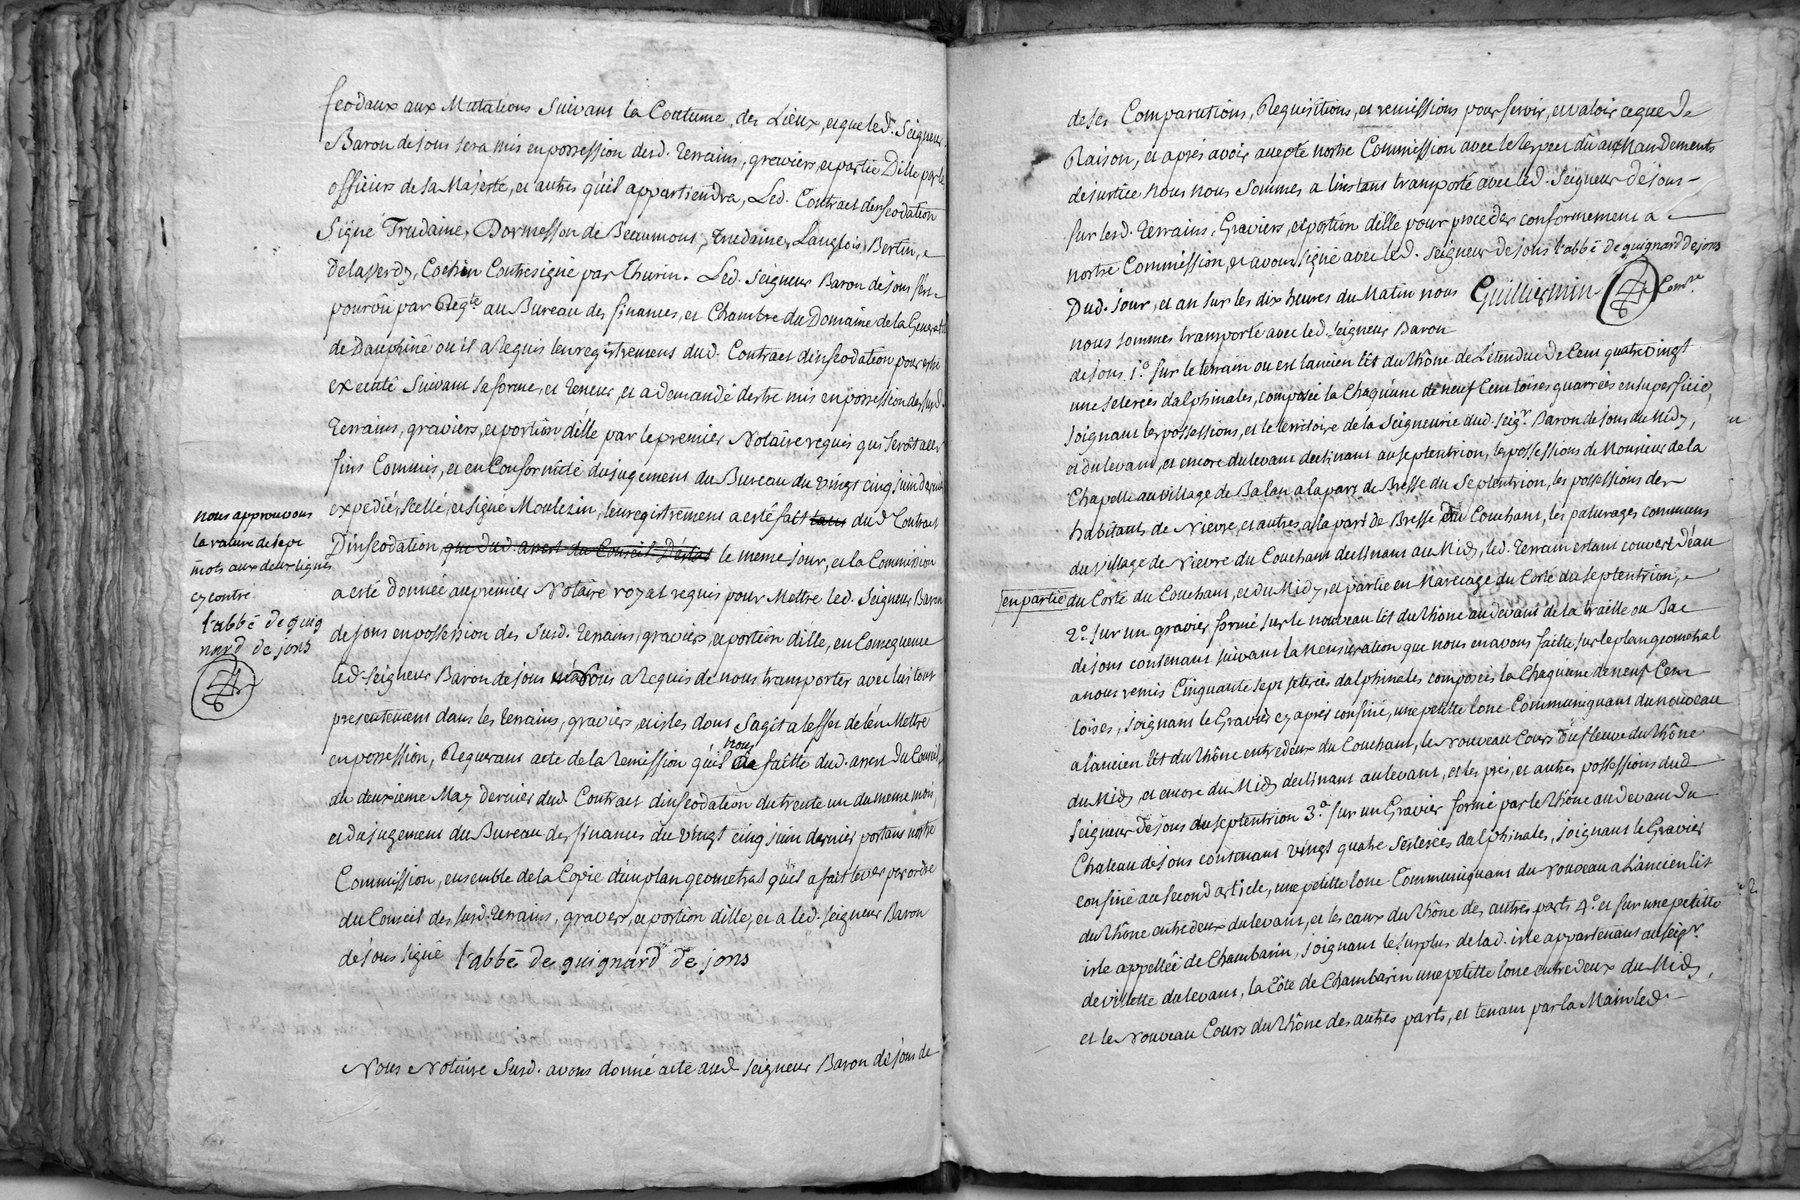 feodaux aux Mutations Suivant la Coutume des Lieux, et que led. Seigneur
Baron de jons sera mis en possession desd. terrains, graviers, et partie Dille par le
officiers de sa Majesté, et autres qu'il appartiendra, Led. Contract d'infeodation
Signé Trudaine, Dormesson de Beaumont, Trudaine, Langlois, Bertin, e
delaverdy, Cochin Contresigné par Thurin. Led. Seigneur Baron de jons sest
pourvû par Reqte au Bureau des finances, et Chambre du Domaine de la Generalité
de Dauphiné ou il a Requis lenregistrement dud. Contract dinfeodation pour estre
executé Suivant sa forme, et teneur, et a demandé destre mis en possession des susd.
terrains, graviers, et portion dille par le premier Notaire requis qui seroit a ces
fins Commis, et en Conformité du jugement du Bureau du vingt cinq juin dernier
expedié, scellé, et signé Moulezin, lenregistrement a esté fait dud Contract
Dinfeodation que dud. arest du Conseil Déstat le meme jour, et la Commission
a esté donnée au premier Notaire royal requis pour Mettre led. Seigneur Baron
de jons en possession des Susd. terrains, graviers, et portion dille, en Consequence
led. Seigneur Baron de jons Nous a Requis de nous transporter avec lui tout
presentement dans les terrains, graviers, et isles dont Sagit a leffet de len Mettre
en possession, Requerant acte de la Remission qu'il nous faitte dud. arrest du Conseil,
du deuxieme May dernier dud. Contract dinfeodation du trente un du meme mois,
et du jugement du Bureau des finances du vingt cinq juin dernier portant nostre
Commission, ensemble de la Copie d'un plan geometral qu'il a fait lever par ordre
du Conseil des susd. terrains, graviers, et portion dille, et a led. seigneur Baron
de jons signé l'abbé de guignard de jons
Nous Notaire Susd. avons donné acte aud seigneur Baron de jons de
nous approuvons
la rature de sept
mots aux deux lignes
cy contre
l'abbé de guig
nard de jons
de ses Comparutions, Requisitions, et remissions pour servir, et valoir ce que de
Raison, et aprés avoir accepté nostre Commission avec le respect dû aux Mandements
de justice Nous nous sommes a linstant transporté avec led. Seigneur de jons
sur lesd. terrains, Graviers, et portion dille pour proceder conformement a
nostre Commission, et avons signé avec led. Seigneur de jons l'abbé de guignard de jons
Guilliermin Comre
Dud. jour, et an sur les dix heures du Matin nous
nous sommes transporté avec led. seigneur Baron
de jons 1.o sur le terrain ou est lancien lit du Rhône de l'etendue de Cent quatre vingt
une seterées dalphinales, composée la Chaquune de neuf Cent toises quarrées en superficie,
joignant les possessions, et le territoire de la Seigneurie dud. seigr. Baron de jons du Midy,
et du levant, et encore du levant declinant au septentrion, les possessions de Monsieur de la
Chapelle au village de Balan a la part de Bresse du Septentrion, les possessions des
habitants de Nievre, et autres a la part de Bresse du Couchant, les paturages communs
du village de Nievre du Couchant declinant au Midy, led. terrain estant couvert d'éau
en partie du Costé du Couchant, et du Midy, et partie en Marecage du Costé du septentrion,
2.o sur un gravier formé sur le nouveau lit du Rhône au devant de la traille ou Bac
de jons contenant suivant la mensuration que nous en avons faitte sur le plan geometral
a nous remis Cinquante sept seterées dalphinales composées la Chaquune de neuf Cent
toises, joignant le Gravier cy aprés confiné, une petitte lone Communiquant du nouveau
a lancien lit du Rhône entre deux du Couchant, le nouveau Cours du fleuve du Rhône
du Midy, et encore du Midy declinant au levant, et les prés, et autres possessions dud
seigneur de jons du septentrion 3.o sur un Gravier formé par le Rhône au devant du
Chateau de jons contenant vingt quatre sesterées dalphinales, joignant le Gravier
confiné au second article, une petitte lone Communiquant du nouveau a l'ancien lit
du Rhône entre deux du levant, et les eaux du Rhône des autres parts 4.o et sur une petitte
isle appellée de Chambarin, joignant le surplus de lad. isle appartenant au seigr.
de villette du levant, la Côte de Chambarin une petitte lone entre deux du Midy,
et le nouveau Cours du Rhône des autres parts, et tenant par la Main led